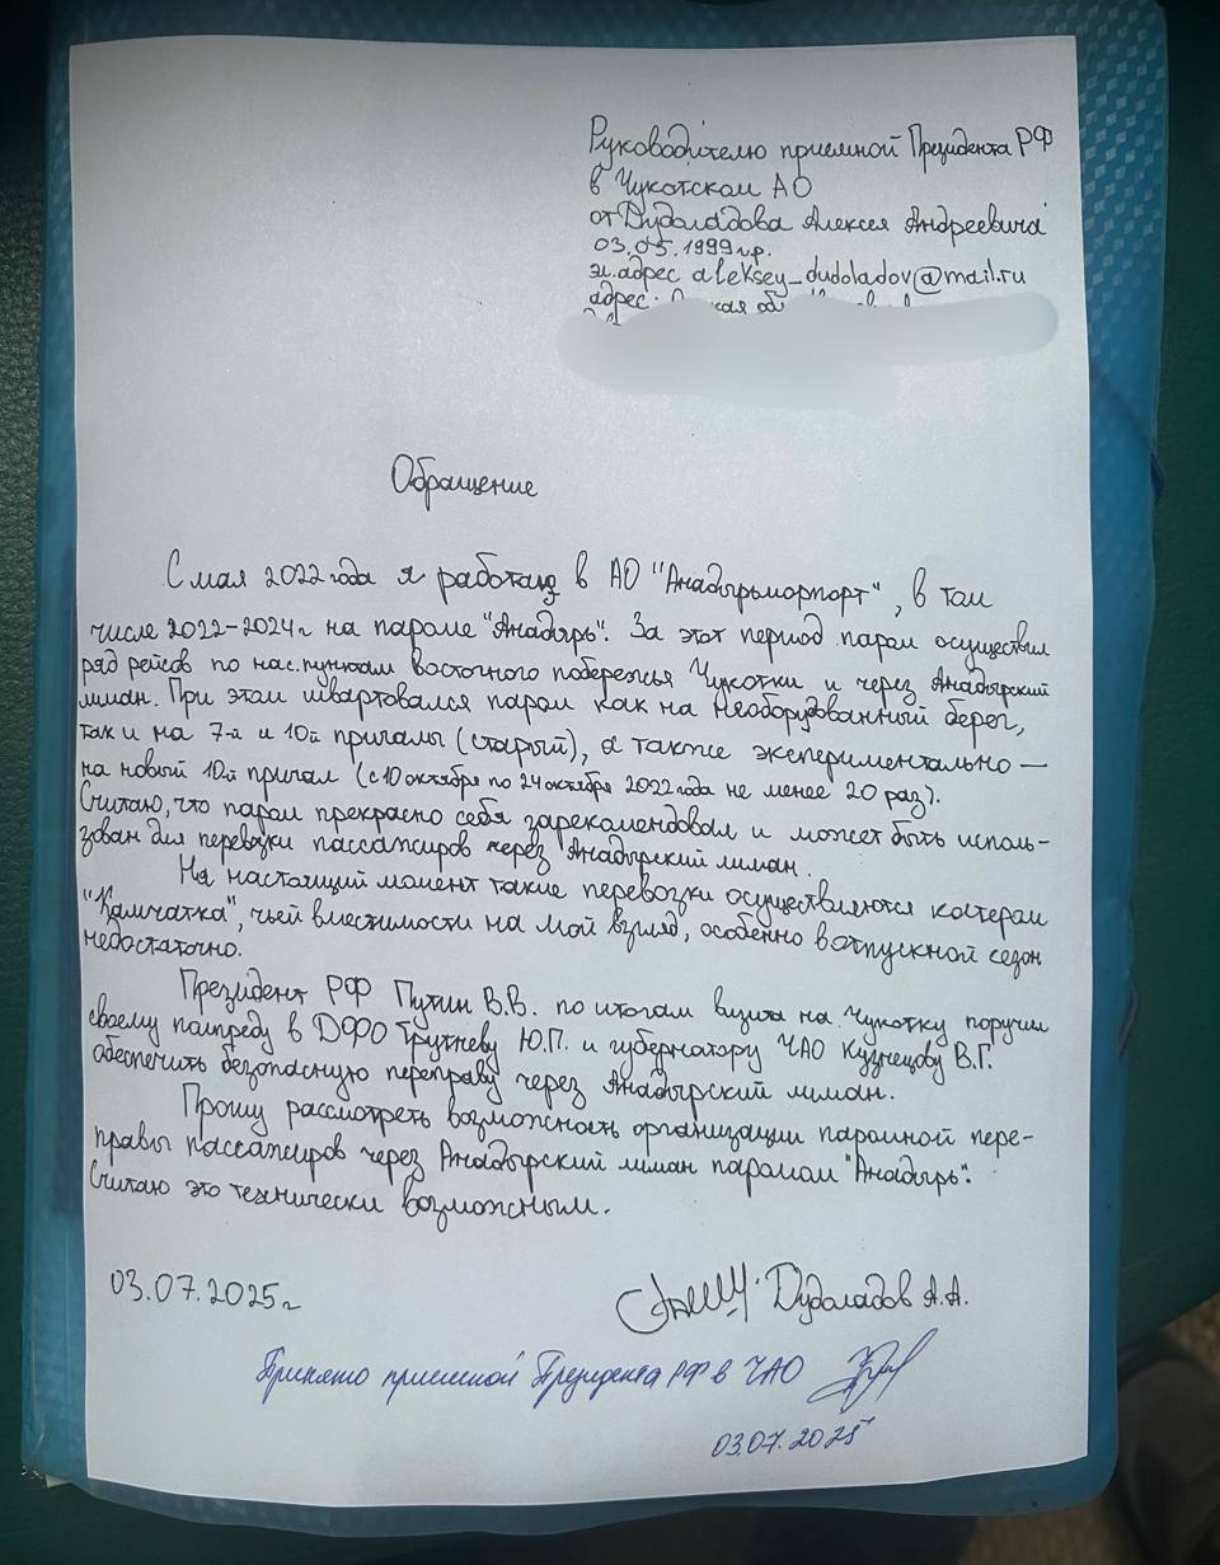 Руководителю приемной Президента РФ
в Чукотском АО
от Дудоладова Алексея Андреевича
03.05.1999 г.р.
эл.адрес aleksey_dudoladov@mail.ru
адрес:
Обращение
С мая 2022 года я работаю в АО "Анадырьморпорт", в том
числе 2022-2024г на пароме "Анадырь". За этот период паром осуществил
ряд рейсов по нас.пунктам восточного побережья Чукотки и через Анадырский
лиман. При этом швартовался паром как на необорудованный берег,
так и на 7-й и 10й причалы (старый), а также экспериментально —
на новый 10й причал (с 10 октября по 24 октября 2022 года не менее 20 раз).
Считаю, что паром прекрасно себя зарекомендовал и может быть исполь-
зован для перевозки пассажиров через Анадырский лиман.
На настоящий момент такие перевозки осуществляются катером
"Камчатка", чьей вместимости на мой взгляд, особенно в отпускной сезон
недостаточно.
Президент РФ Путин В.В. по итогам визита на Чукотку поручил
своему полпреду в ДФО Трутневу Ю.П. и губернатору ЧАО Кузнецову В.Г.
обеспечить безопасную переправу через Анадырский лиман.
Прошу рассмотреть возможность организации паромной пере-
правы пассажиров через Анадырский лиман паромом "Анадырь".
Считаю это технически возможным.
03.07.2025г
Дудоладов А.А.
Принято приемной Президента РФ в ЧАО
03.07.2025